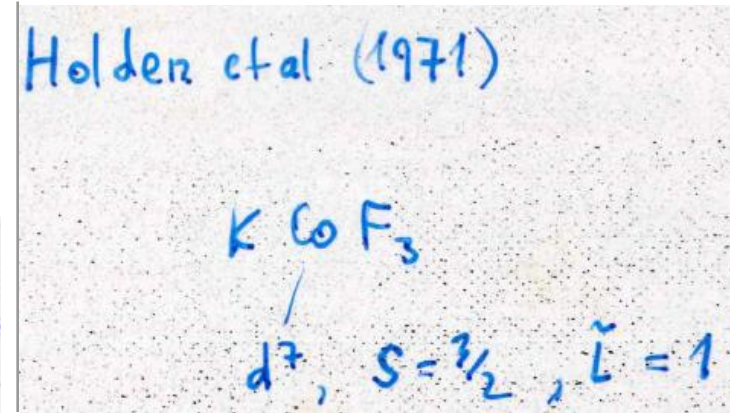 Holden et al (1971)
K Co F₃
d⁷, S = 3/2, L̃ = 1